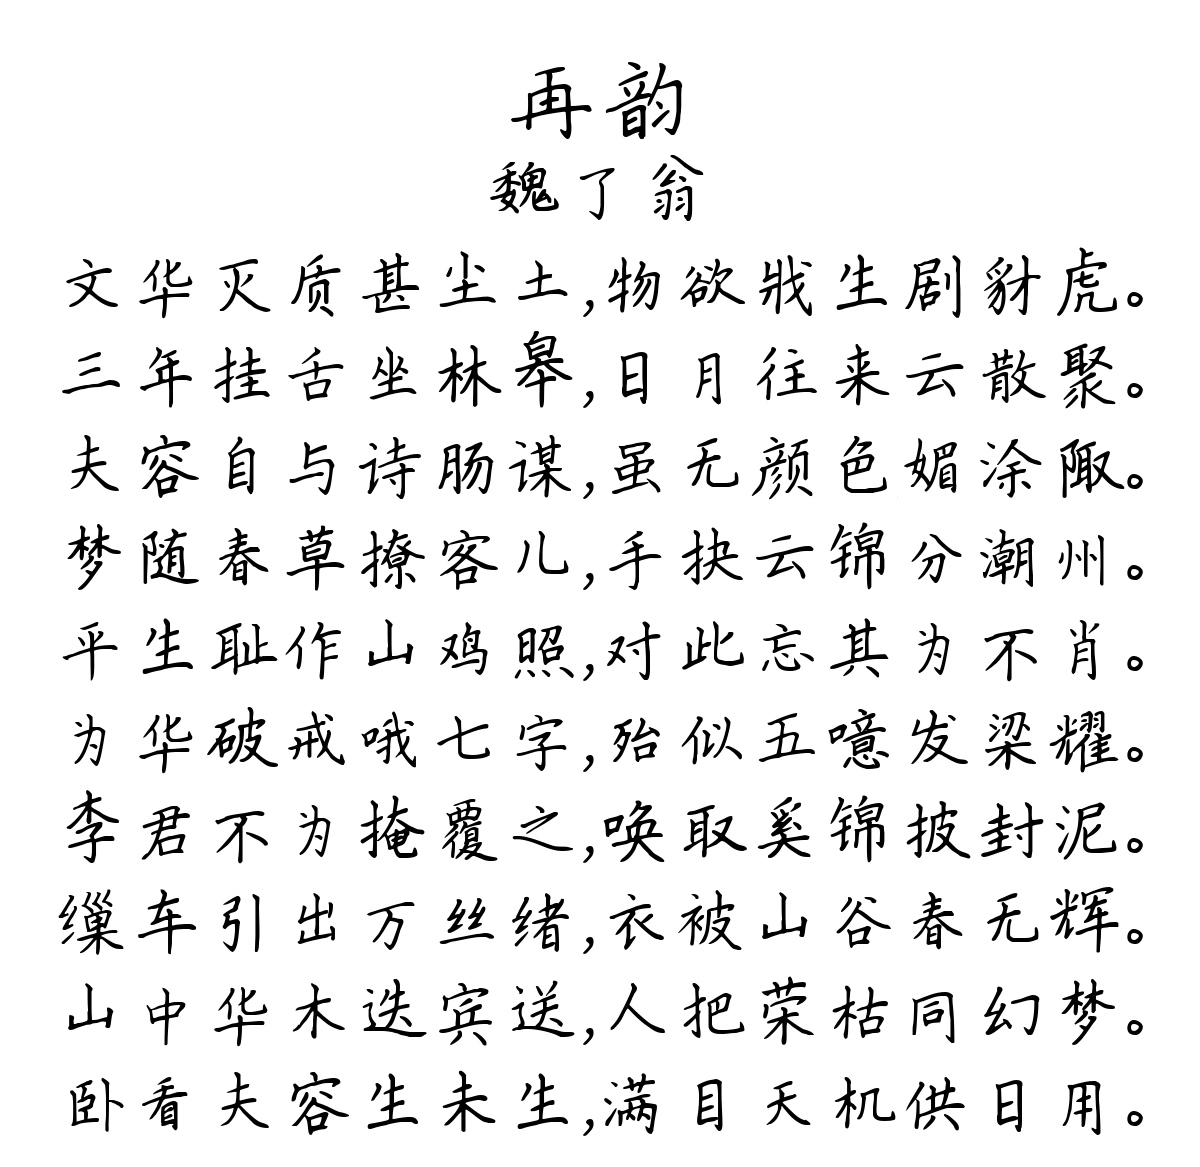 再韵
魏了翁
文华灭质甚尘土,物欲戕生剧豺虎。
三年挂舌坐林皋,日月往来云散聚。
夫容自与诗肠谋,虽无颜色媚涂陬。
梦随春草撩客儿,手抉云锦分潮州。
平生耻作山鸡照,对此忘其为不肖。
为华破戒哦七字,殆似五噫发梁耀。
李君不为掩覆之,唤取奚锦披封泥。
缫车引出万丝绪,衣被山谷春无辉。
山中华木迭宾送,人把荣枯同幻梦。
卧看夫容生未生,满目天机供日用。